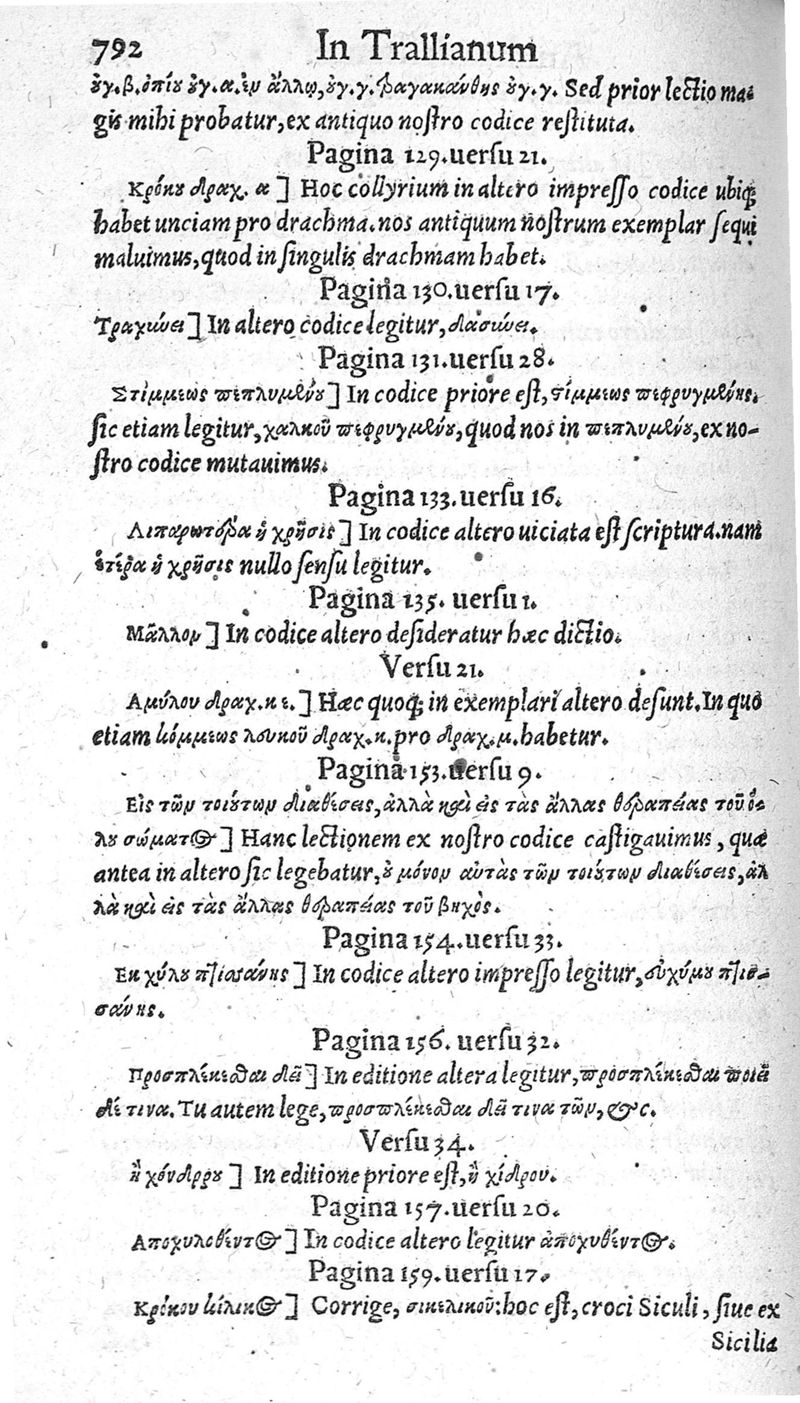 792 In Trallianum
ȣγ.β.ὀπίȣ ȣγ.α.ἐν ἄλλῳ,ȣγ.γ.τραγακάνθης ȣγ.γ. Sed prior lectio ma-
gis mihi probatur,ex antiquo nostro codice restituta.
Pagina 129.uersu 21.
Κρόκȣ δραχ. α ] Hoc collyrium in altero impresso codice ubiq;
habet unciam pro drachma.nos antiquum nostrum exemplar sequi
maluimus,quod in singulis drachmam habet.
Pagina 130.uersu 17.
Τραχώνει ] In altero codice legitur,δασώνει.
Pagina 131.uersu 28.
Στίμμεως πεπλυμένȣ ] In codice priore est,στίμμεως πεφρυγμένης.
sic etiam legitur,χαλκοῦ πεφρυγμένȣ,quod nos in πεπλυμένȣ,ex no-
stro codice mutauimus.
Pagina 133.uersu 16.
Λιπαρωτέρα ἡ χρῆσις ] In codice altero uiciata est scriptura.nam
ἑτέρα ἡ χρῆσις nullo sensu legitur.
Pagina 135. uersu 1.
Μᾶλλον ] In codice altero desideratur hæc dictio.
Versu 21.
Αμύλου δραχ.κ ε. ] Hæc quoq; in exemplari altero desunt.In quo
etiam κόμμεως λευκοῦ δραχ.κ.pro δραχ.μ.habetur.
Pagina 153.uersu 9.
Εἰς τῶν τοιȣ́των διαθέσεις,ἀλλὰ καὶ εἰς τὰς ἄλλας θεραπείας τοῦ ὅ-
λȣ σώματος ] Hanc lectionem ex nostro codice castigauimus, quæ
antea in altero sic legebatur,ȣ μόνον αὐτὰς τῶν τοιȣ́των διαθέσεις,ἀλ
λὰ καὶ εἰς τὰς ἄλλας θεραπείας τοῦ βηχὸς.
Pagina 154.uersu 33.
Εκ χύλȣ πτισσάνης ] In codice altero impresso legitur,εὐχύμȣ πτισ-
σάνης.
Pagina 156. uersu 32.
Προσπλέκεσθαι δεῖ ] In editione altera legitur,προσπλέκεσθαι ποιεῖ
δέ τινα.Tu autem lege,προσπλέκεσθαι δεῖ τινα τῶν,&c.
Versu 34.
ἢ χόνδρȣ ] In editione priore est,ἢ χίδρου.
Pagina 157.uersu 20.
Αποχυλωθέντος ] In codice altero legitur ἀποχυθέντος.
Pagina 159.uersu 17.
Κρόκου κίλικος ] Corrige, σικελικοῦ:hoc est,croci Siculi, siue ex
Sicilia